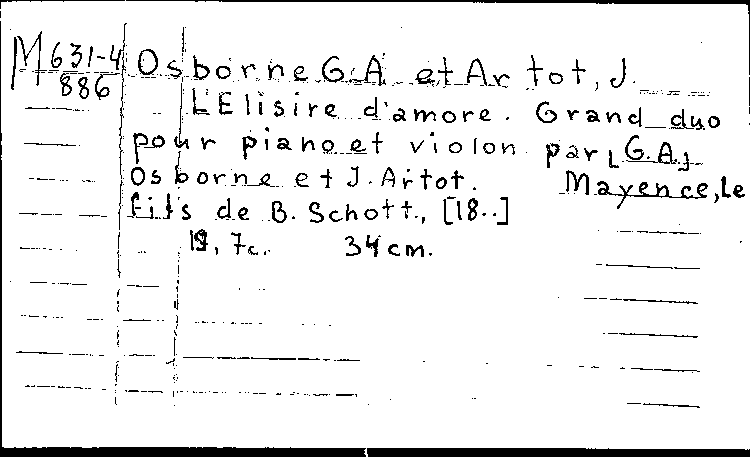 M 631-4/886 Osborne G.A. et Artot, J.
L'Elisire d'amore. Grand duo
pour piano et violon par [G.A.]
Osborne et J. Artot. Mayence, le
fils de B. Schott., [18..]
19, 7c. 34 cm.